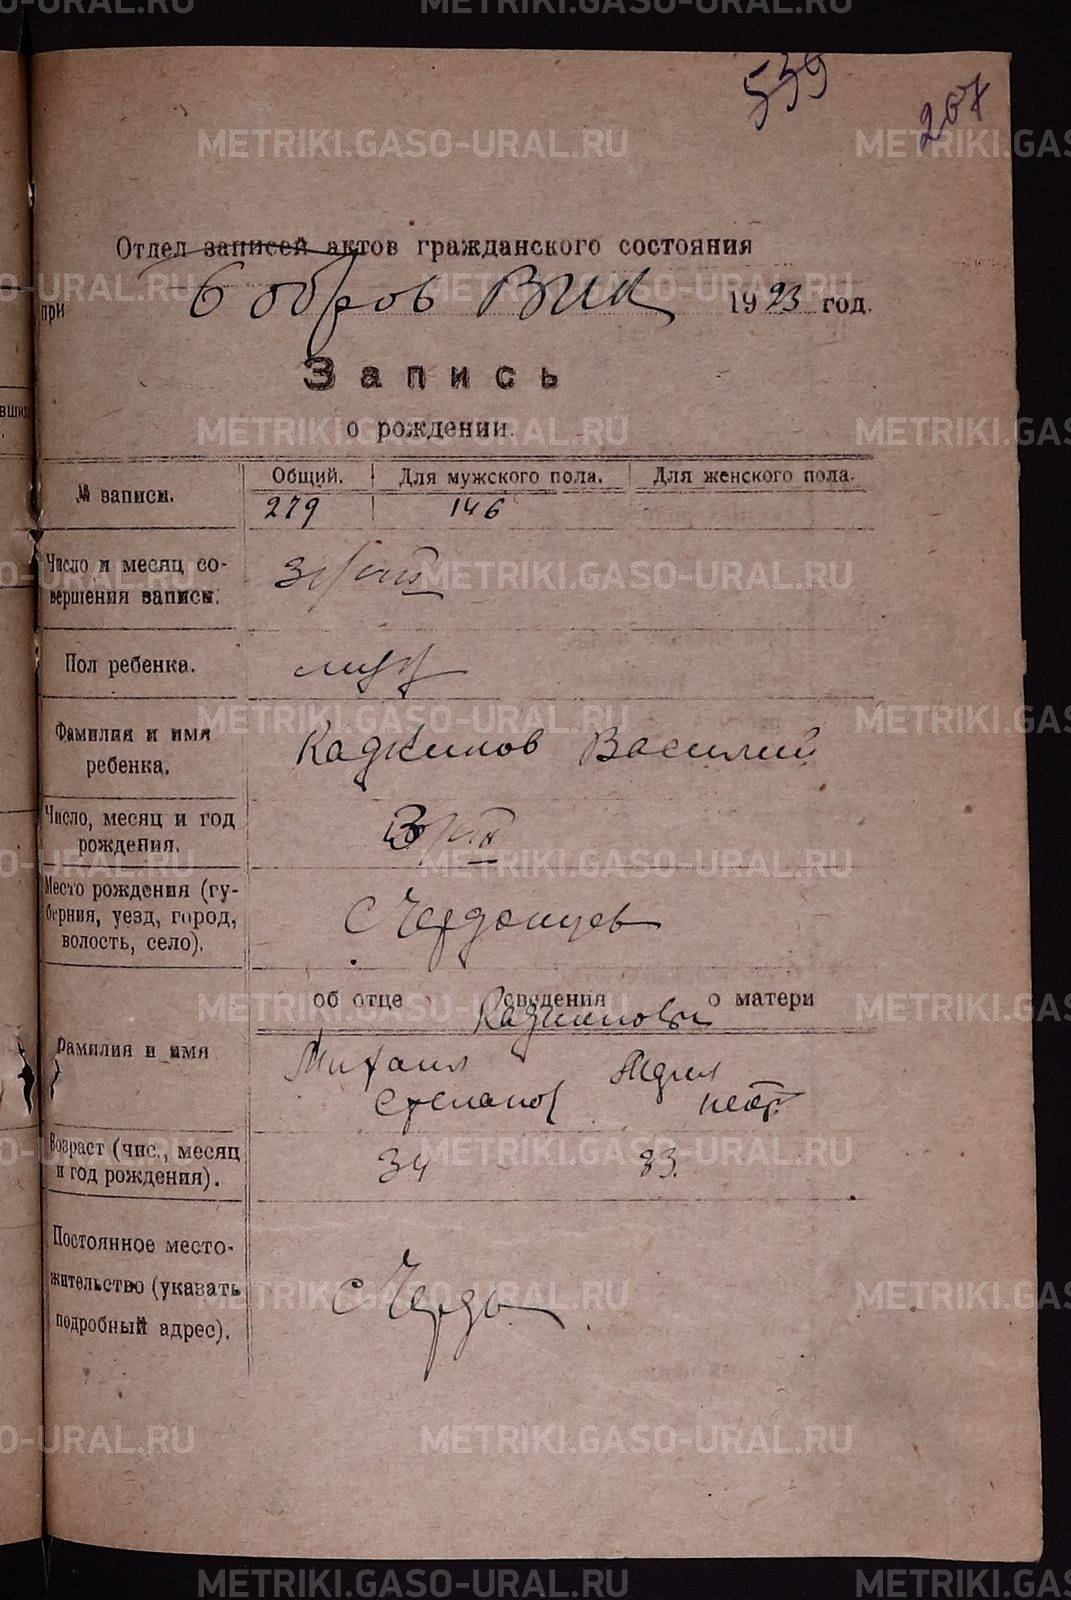 539
207
Отдел записей актов гражданского состояния
при Бобров ВИК 1923 год.
Запись
о рождении.
№ записи.
Общий. Для мужского пола. Для женского пола.
279 146
Число и месяц со-
вершения записи.
Пол ребенка.
муж
Фамилия и имя
ребенка.
Кадкинов Василий
Число, месяц и год
рождения.
Место рождения (гу-
берния, уезд, город,
волость, село).
с Черданцев
об отце сведения о матери
Фамилия и имя
Михаил
Степанов
Возраст (чис., месяц
и год рождения).
34 33.
Постоянное место-
жительство (указать
подробный адрес).
с Черды
METRIKI.GASO-URAL.RU